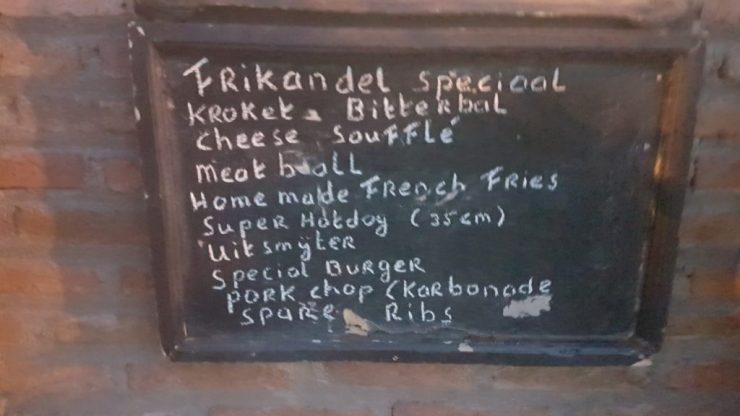 FRikandel speciaal
KROKet. BitterBal
cheese soufflé
meat ball
Home made FRench FRies
SupeR Hotdog (35cm)
UitsmÿteR
special BuRgeR
poRk chop (KaRbonade
spaRe Ribs